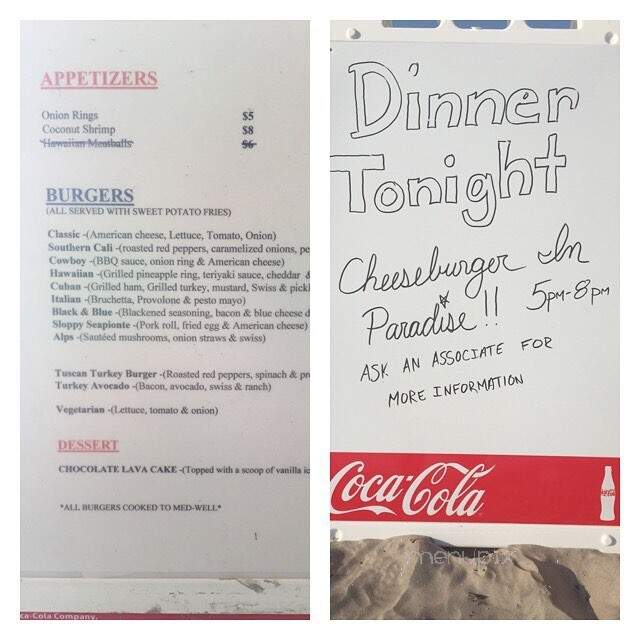 APPETIZERS
Onion Rings $5
Coconut Shrimp $8
Hawaiian Meatballs $6
BURGERS
(ALL SERVED WITH SWEET POTATO FRIES)
Classic -(American cheese, Lettuce, Tomato, Onion)
Southern Cali -(roasted red peppers, caramelized onions, pe
Cowboy -(BBQ sauce, onion ring & American cheese)
Hawaiian -(Grilled pineapple ring, teriyaki sauce, cheddar &
Cuban -(Grilled ham, Grilled turkey, mustard, Swiss & pickl
Italian -(Bruchetta, Provolone & pesto mayo)
Black & Blue -(Blackened seasoning, bacon & blue cheese d
Sloppy Seapionte -(Pork roll, fried egg & American cheese)
Alps -(Sautéed mushrooms, onion straws & swiss)
Tuscan Turkey Burger -(Roasted red peppers, spinach & pr
Turkey Avocado -(Bacon, avocado, swiss & ranch)
Vegetarian -(Lettuce, tomato & onion)
DESSERT
CHOCOLATE LAVA CAKE -(Topped with a scoop of vanilla ic
*ALL BURGERS COOKED TO MED-WELL*
1
ca-Cola Company.
Dinner
Tonight
Cheeseburger In
Paradise!! 5PM-8PM
ASK AN ASSOCIATE FOR
MORE INFORMATION
Coca-Cola
menupix